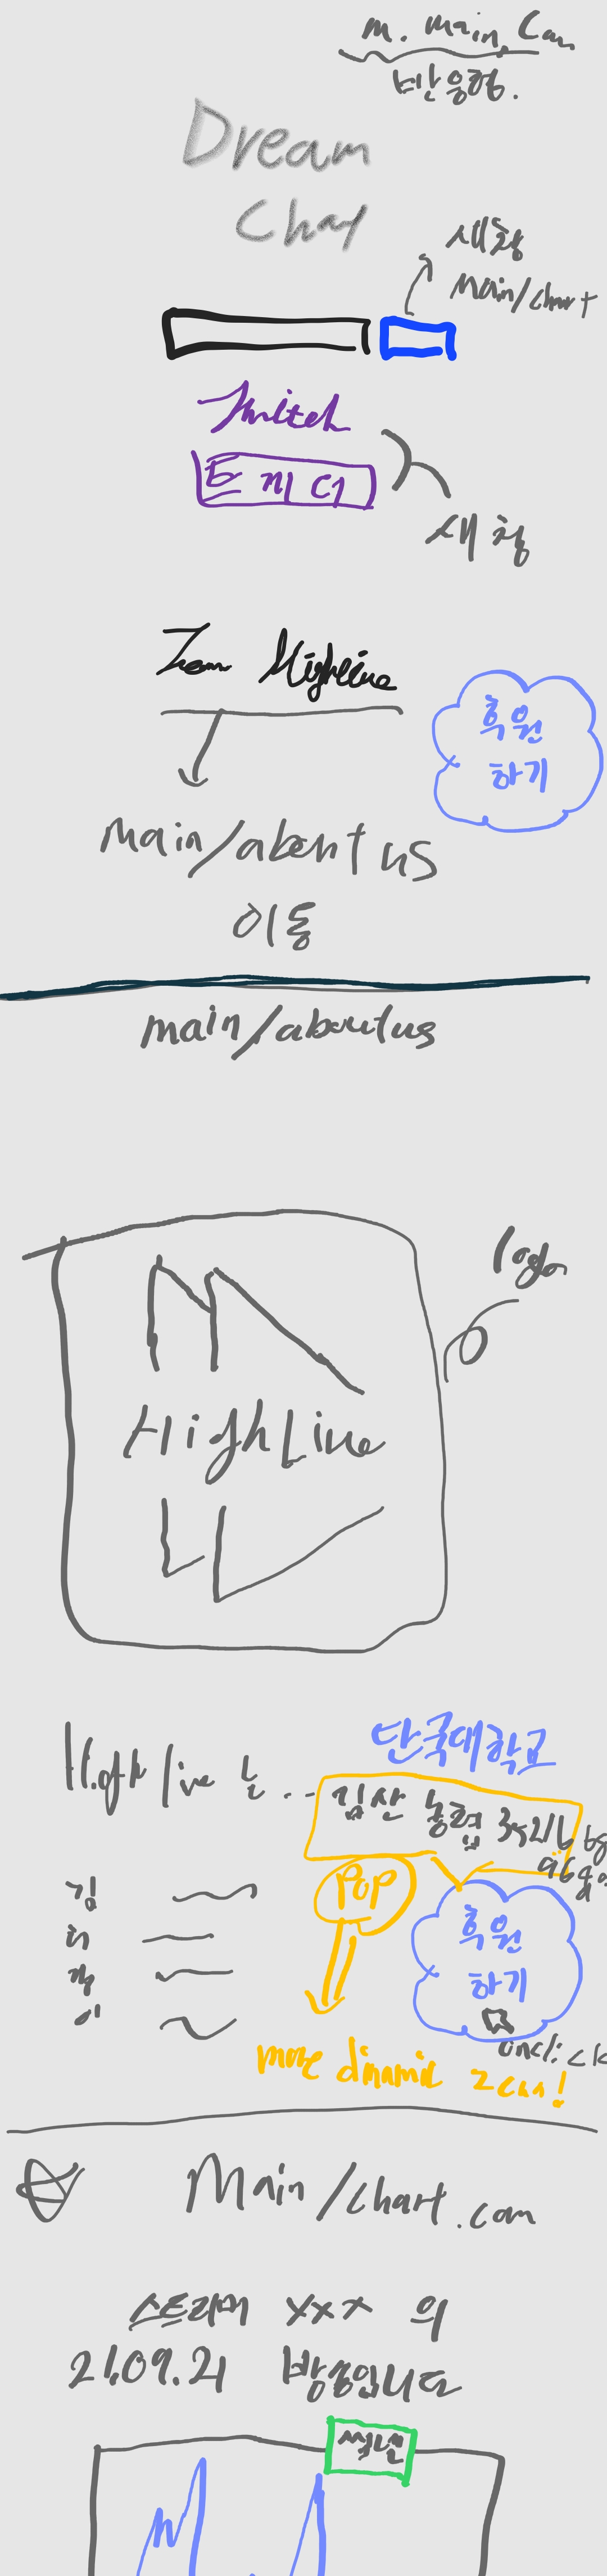 m. main. Com
반응형.
Dream
Chat
새창
main/chart
Twitch
트위치
새창
Team Highline
후원
하기
main/about us
이동
main/aboutus
logo
HighLine
High line 는 ...
단국대학교
김산 농협 352116
김
이
POP
후원
하기
onclick
more dinamic
Main/chart.com
스트리머 xxx 의
21.09.21 방송입니다
썸넬